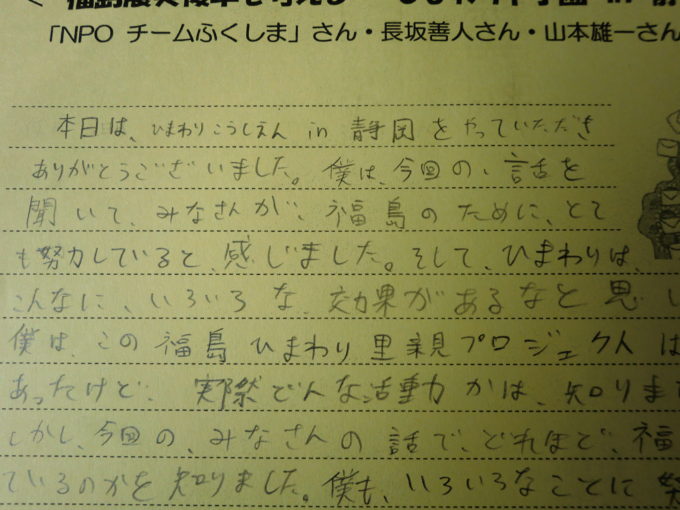 「NPO チームふくしま」さん・長坂善人さん・山本雄一さん
本日は、ひまわりこうしえん in 静岡をやっていただき
ありがとうございました。僕は、今回の、話を
聞いて、みなさんが、福島のために、とて
も努力していると、感じました。そして、ひまわりは、
こんなに、いろいろな、効果があるなと思い
僕は、この福島ひまわり里親プロジェクトは
あったけど、実際どんな活動かは、知りま
しかし、今回の、みなさんの話で、どれほど、福
ているのかを知りました。僕も、いろいろなことに努